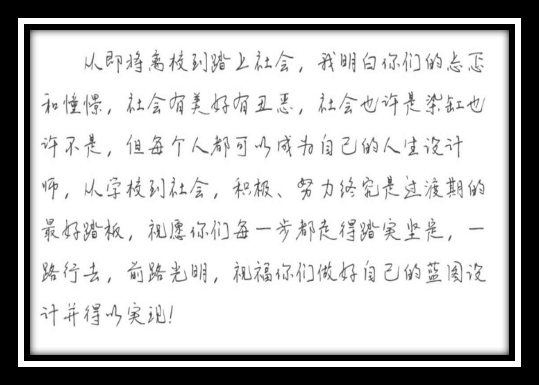 从即将离校到踏上社会，我明白你们的忐忑
和憧憬，社会有美好有丑恶，社会也许是染缸也
许不是，但每个人都可以成为自己的人生设计
师，从学校到社会，积极、努力终究是过渡期的
最好踏板，祝愿你们每一步都走得踏实坚定，一
路行去，前路光明，祝福你们做好自己的蓝图设
计并得以实现！